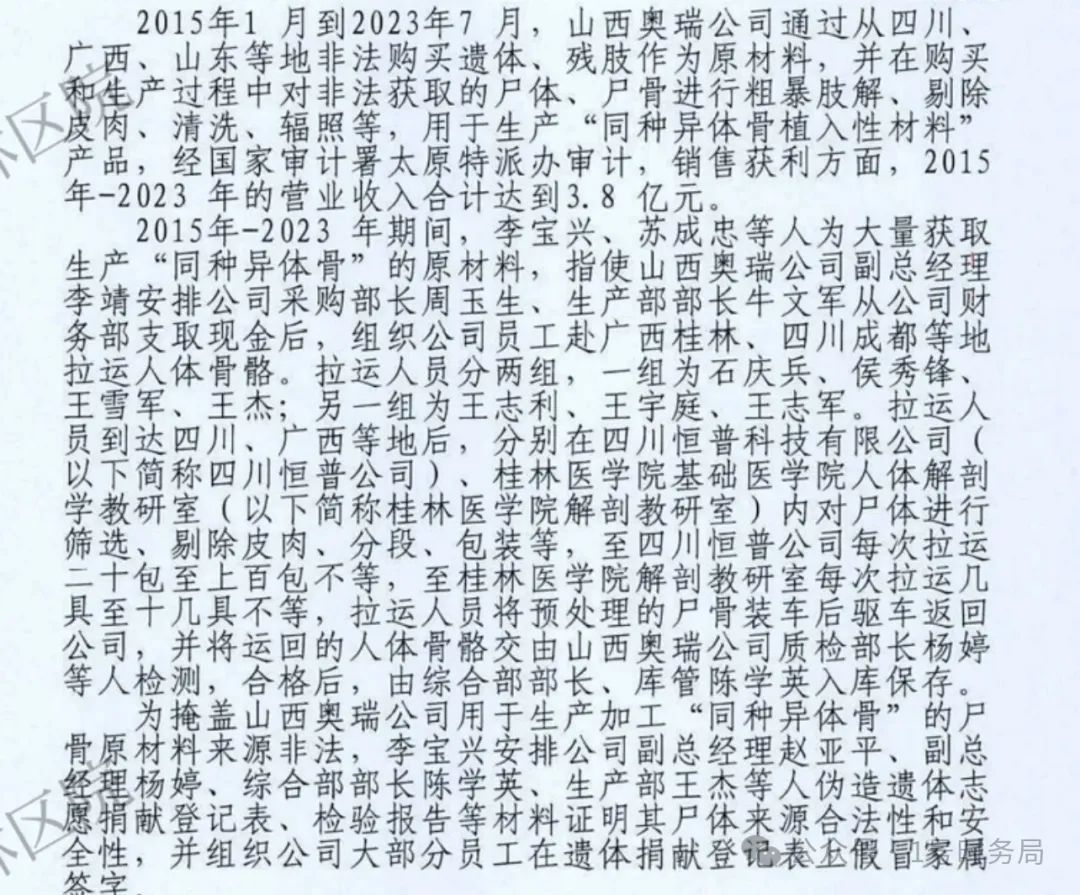 2015年1 月到2023年7 月，山西奥瑞公司通过从四川、
广西、山东等地非法购买遗体、残肢作为原材料，并在购买
和生产过程中对非法获取的尸体、尸骨进行粗暴肢解、剔除
皮肉、清洗、辐照等，用于生产“同种异体骨植入性材料”
产品，经国家审计署太原特派办审计，销售获利方面，2015
年-2023 年的营业收入合计达到3.8 亿元。
2015年-2023 年期间，李宝兴、苏成忠等人为大量获取
生产“同种异体骨”的原材料，指使山西奥瑞公司副总经理
李靖安排公司采购部长周玉生、生产部部长牛文军从公司财
务部支取现金后，组织公司员工赴广西桂林、四川成都等地
拉运人体骨骼。拉运人员分两组，一组为石庆兵、侯秀锋、
王雪军、王杰；另一组为王志利、王宇庭、王志军。拉运人
员到达四川、广西等地后，分别在四川恒普科技有限公司（
以下简称四川恒普公司）、桂林医学院基础医学院人体解剖
学教研室（以下简称桂林医学院解剖教研室）内对尸体进行
筛选、剔除皮肉、分段、包装等，至四川恒普公司每次拉运
二十包至上百包不等，至桂林医学院解剖教研室每次拉运几
具至十几具不等，拉运人员将预处理的尸骨装车后驱车返回
公司，并将运回的人体骨骼交由山西奥瑞公司质检部长杨婷
等人检测，合格后，由综合部部长、库管陈学英入库保存。
为掩盖山西奥瑞公司用于生产加工“同种异体骨”的尸
骨原材料来源非法，李宝兴安排公司副总经理赵亚平、副总
经理杨婷、综合部部长陈学英、生产部王杰等人伪造遗体志
愿捐献登记表、检验报告等材料证明其尸体来源合法性和安
全性，并组织公司大部分员工在遗体捐献登记表上假冒家属
签字。
区院
林区院
公众号
服务局